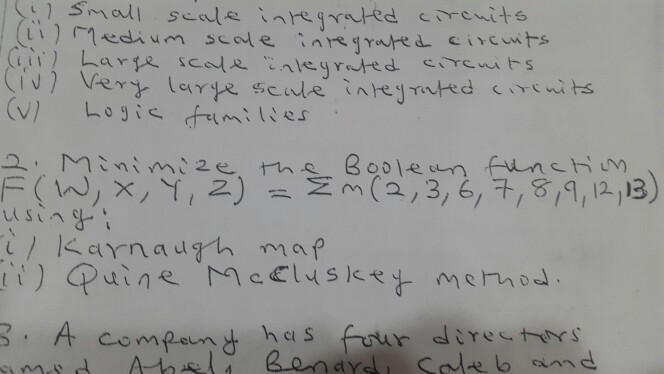 (i) Small scale integrated circuits
(ii) Medium scale integrated circuits
(iii) Large scale integrated circuits
(iv) Very large scale integrated circuits
(v) Logic families
2. Minimize the Boolean function
F(W, X, Y, Z) = Σ m(2, 3, 6, 7, 8, 9, 12, 13)
using:
i) Karnaugh map
ii) Quine McCluskey method.
3. A company has four directors
Abel, Benard, Caleb and